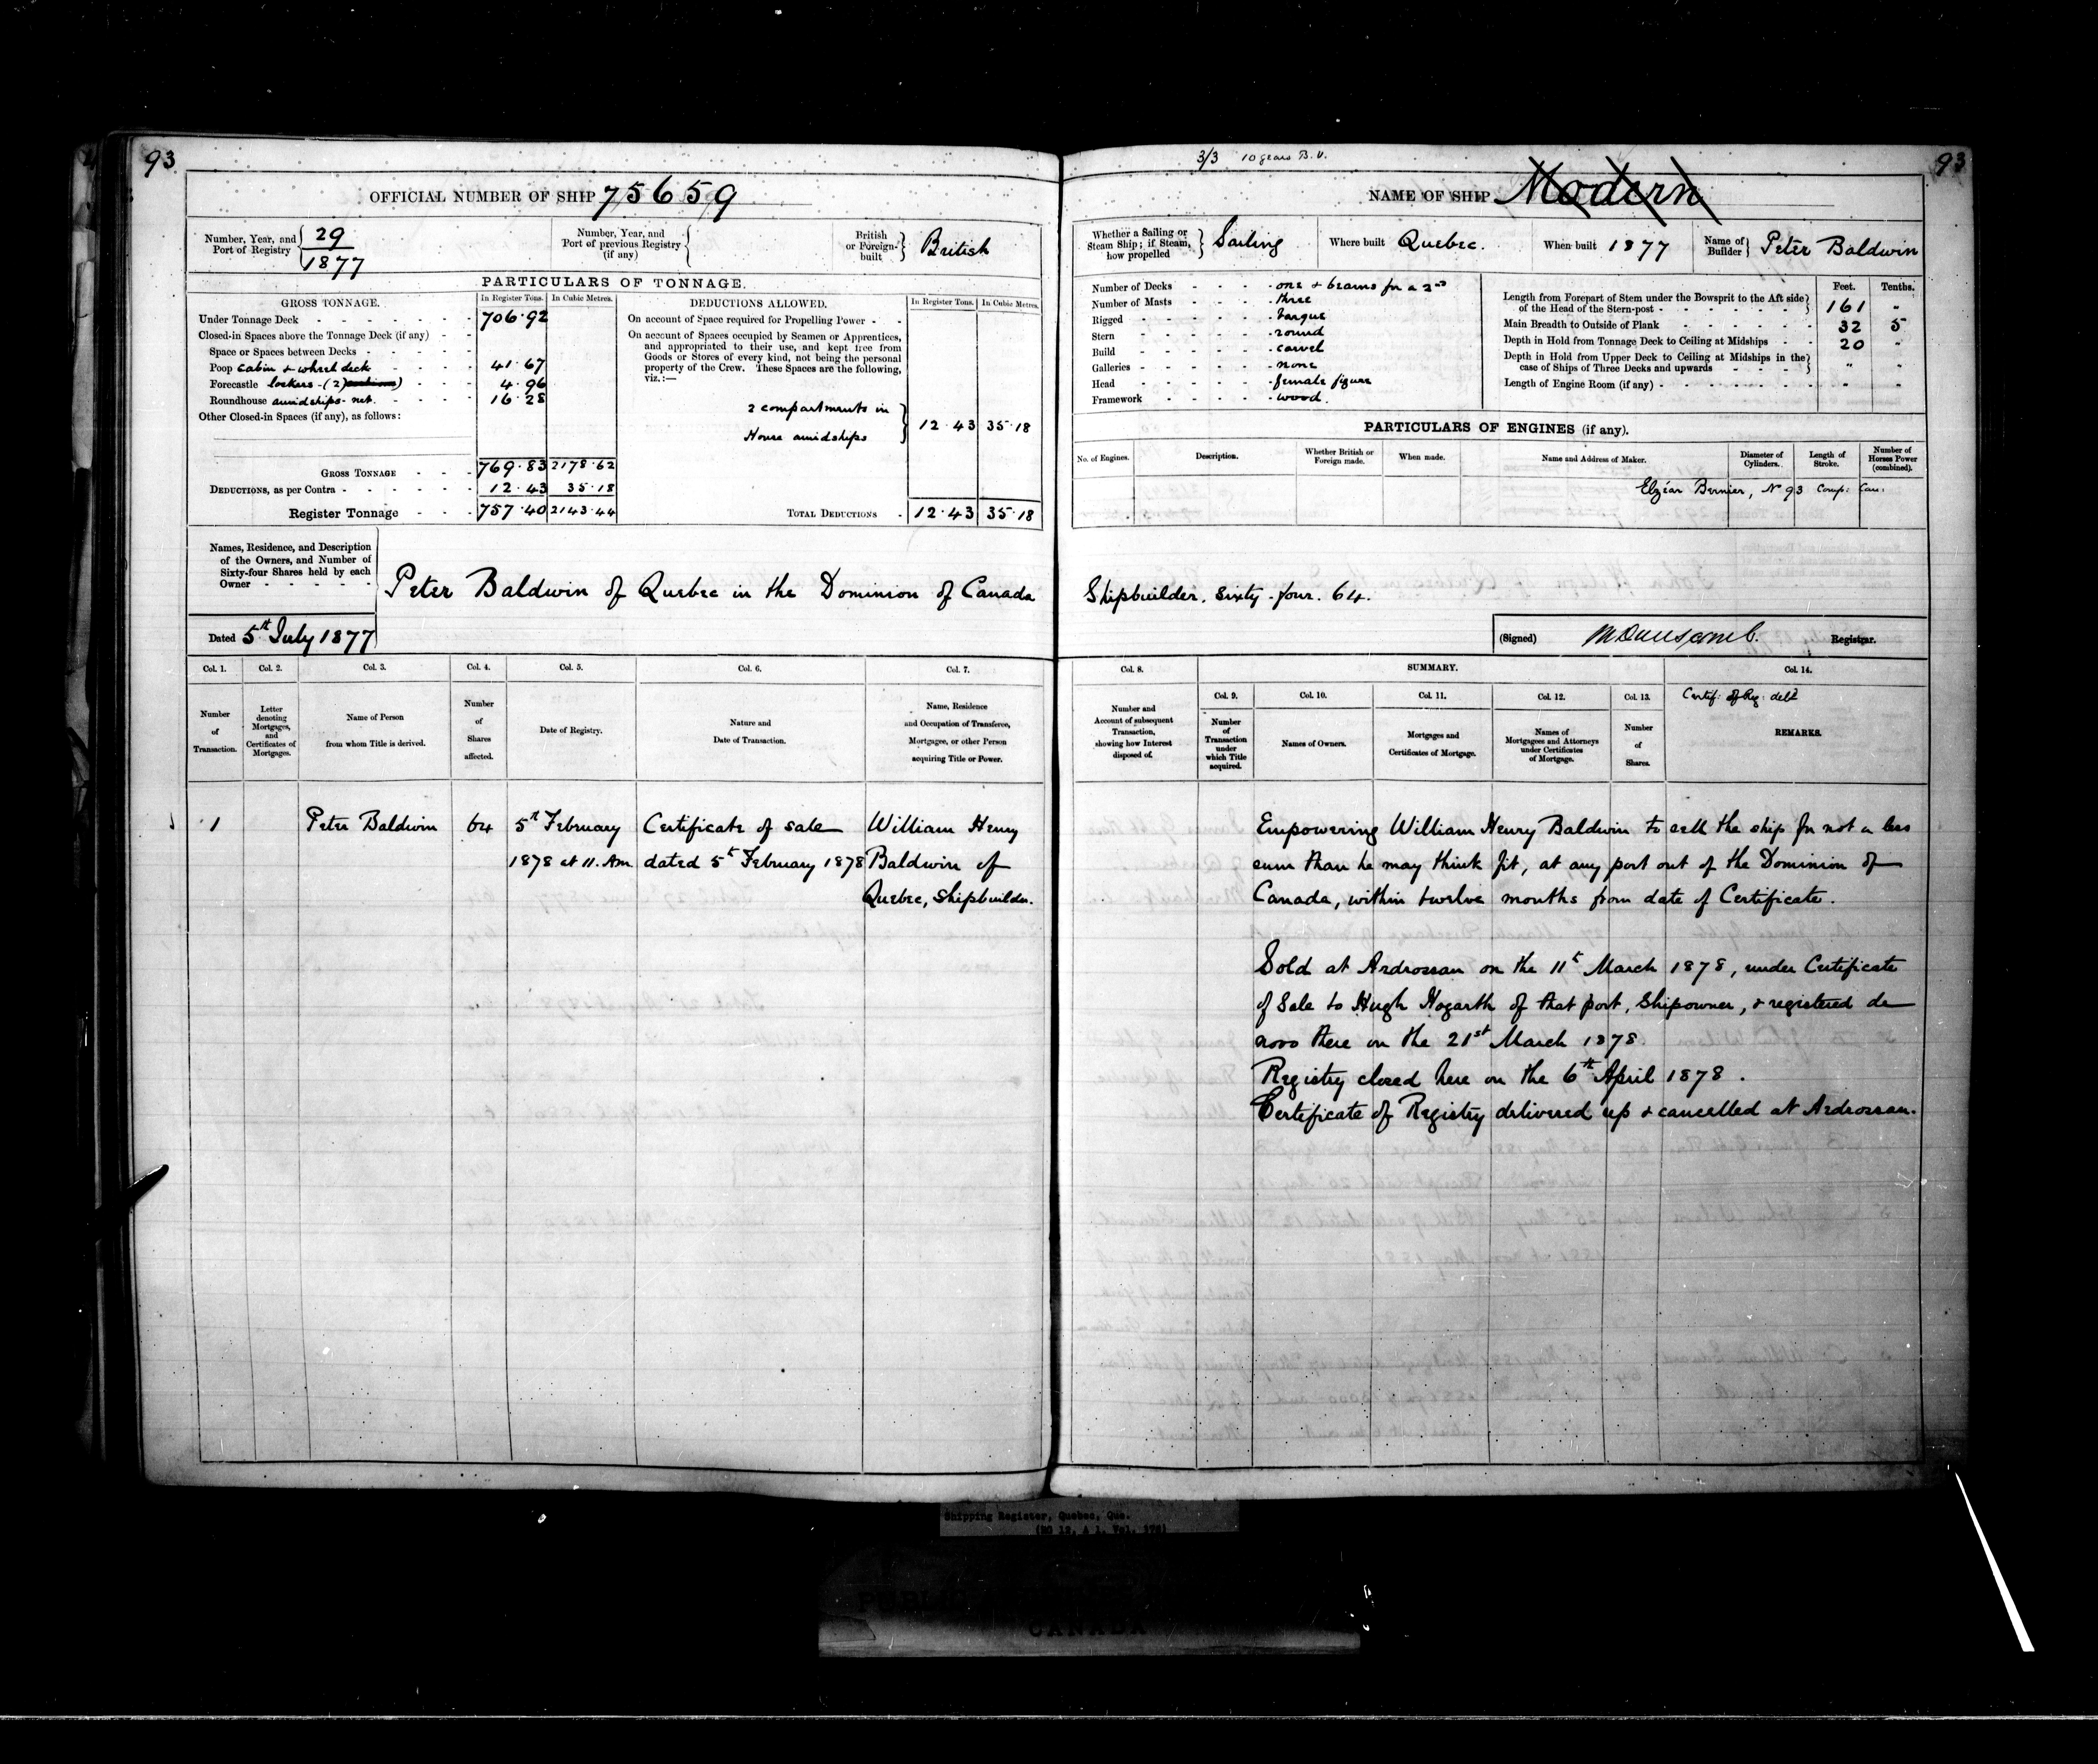 93
OFFICIAL NUMBER OF SHIP 75659
Number, Year, and Port of Registry 29 1877
Number, Year, and Port of previous Registry (if any)
British or Foreign-built British
PARTICULARS OF TONNAGE.
GROSS TONNAGE. In Register Tons. In Cubic Metres.
Under Tonnage Deck 706.92
Closed-in Spaces above the Tonnage Deck (if any)
Space or Spaces between Decks
Poop cabin & wheel deck 41.67
Forecastle lockers - (2) 4.96
Roundhouse amidships - net. 16.28
Other Closed-in Spaces (if any), as follows:
GROSS TONNAGE 769.83 2178.62
DEDUCTIONS, as per Contra 12.43 35.18
Register Tonnage 757.40 2143.44
DEDUCTIONS ALLOWED. In Register Tons. In Cubic Metres.
On account of Space required for Propelling Power
On account of Spaces occupied by Seamen or Apprentices,
and appropriated to their use, and kept free from
Goods or Stores of every kind, not being the personal
property of the Crew. These Spaces are the following,
viz.:—
2 compartments in
House amidships 12.43 35.18
TOTAL DEDUCTIONS 12.43 35.18
Names, Residence, and Description
of the Owners, and Number of
Sixty-four Shares held by each
Owner
Peter Baldwin of Quebec in the Dominion of Canada
Dated 5th July 1877
Col. 1. Col. 2. Col. 3. Col. 4. Col. 5. Col. 6. Col. 7.
Number of Transaction.
Letter denoting Mortgages, and Certificates of Mortgages.
Name of Person from whom Title is derived.
Number of Shares affected.
Date of Registry.
Nature and Date of Transaction.
Name, Residence and Occupation of Transferee, Mortgagee, or other Person acquiring Title or Power.
1 Peter Baldwin 64 5th February Certificate of sale William Henry
1878 at 11. Am dated 5th February 1878 Baldwin of
Quebec, Shipbuilder.
3/3 10 years B.V.
93
NAME OF SHIP Modern
Whether a Sailing or Steam Ship; if Steam, how propelled Sailing
Where built Quebec.
When built 1877
Name of Builder Peter Baldwin
Number of Decks one & beams for a 2nd
Number of Masts three
Rigged barque
Stern round
Build carvel
Galleries none
Head female figure
Framework wood.
Feet. Tenths.
Length from Forepart of Stem under the Bowsprit to the Aft side
of the Head of the Stern-post 161 "
Main Breadth to Outside of Plank 32 5
Depth in Hold from Tonnage Deck to Ceiling at Midships 20 "
Depth in Hold from Upper Deck to Ceiling at Midships in the
case of Ships of Three Decks and upwards " "
Length of Engine Room (if any)
PARTICULARS OF ENGINES (if any).
No. of Engines. Description. Whether British or Foreign made. When made. Name and Address of Maker. Diameter of Cylinders. Length of Stroke. Number of Horses Power (combined).
Elzéar Bernier, No 93 Comp: Can.
Shipbuilder. Sixty-four. 64.
(Signed) Registrar.
Col. 8. SUMMARY. Col. 14.
Col. 9. Col. 10. Col. 11. Col. 12. Col. 13.
Certif: of Reg: deld
Number and Account of subsequent Transaction, showing how Interest disposed of.
Number of Transaction under which Title acquired.
Names of Owners.
Mortgages and Certificates of Mortgage.
Names of Mortgagees and Attorneys under Certificates of Mortgage.
Number of Shares.
REMARKS.
Empowering William Henry Baldwin to sell the ship for not a less
sum than he may think fit, at any port out of the Dominion of
Canada, within twelve months from date of Certificate.
Sold at Ardrossan on the 11th March 1878, under Certificate
of Sale to Hugh Hogarth of that port, Shipowner, & registered de
novo there on the 21st March 1878.
Registry closed here on the 6th April 1878.
Certificate of Registry delivered up & cancelled at Ardrossan.
Shipping Register, Quebec, Que.
CANADA